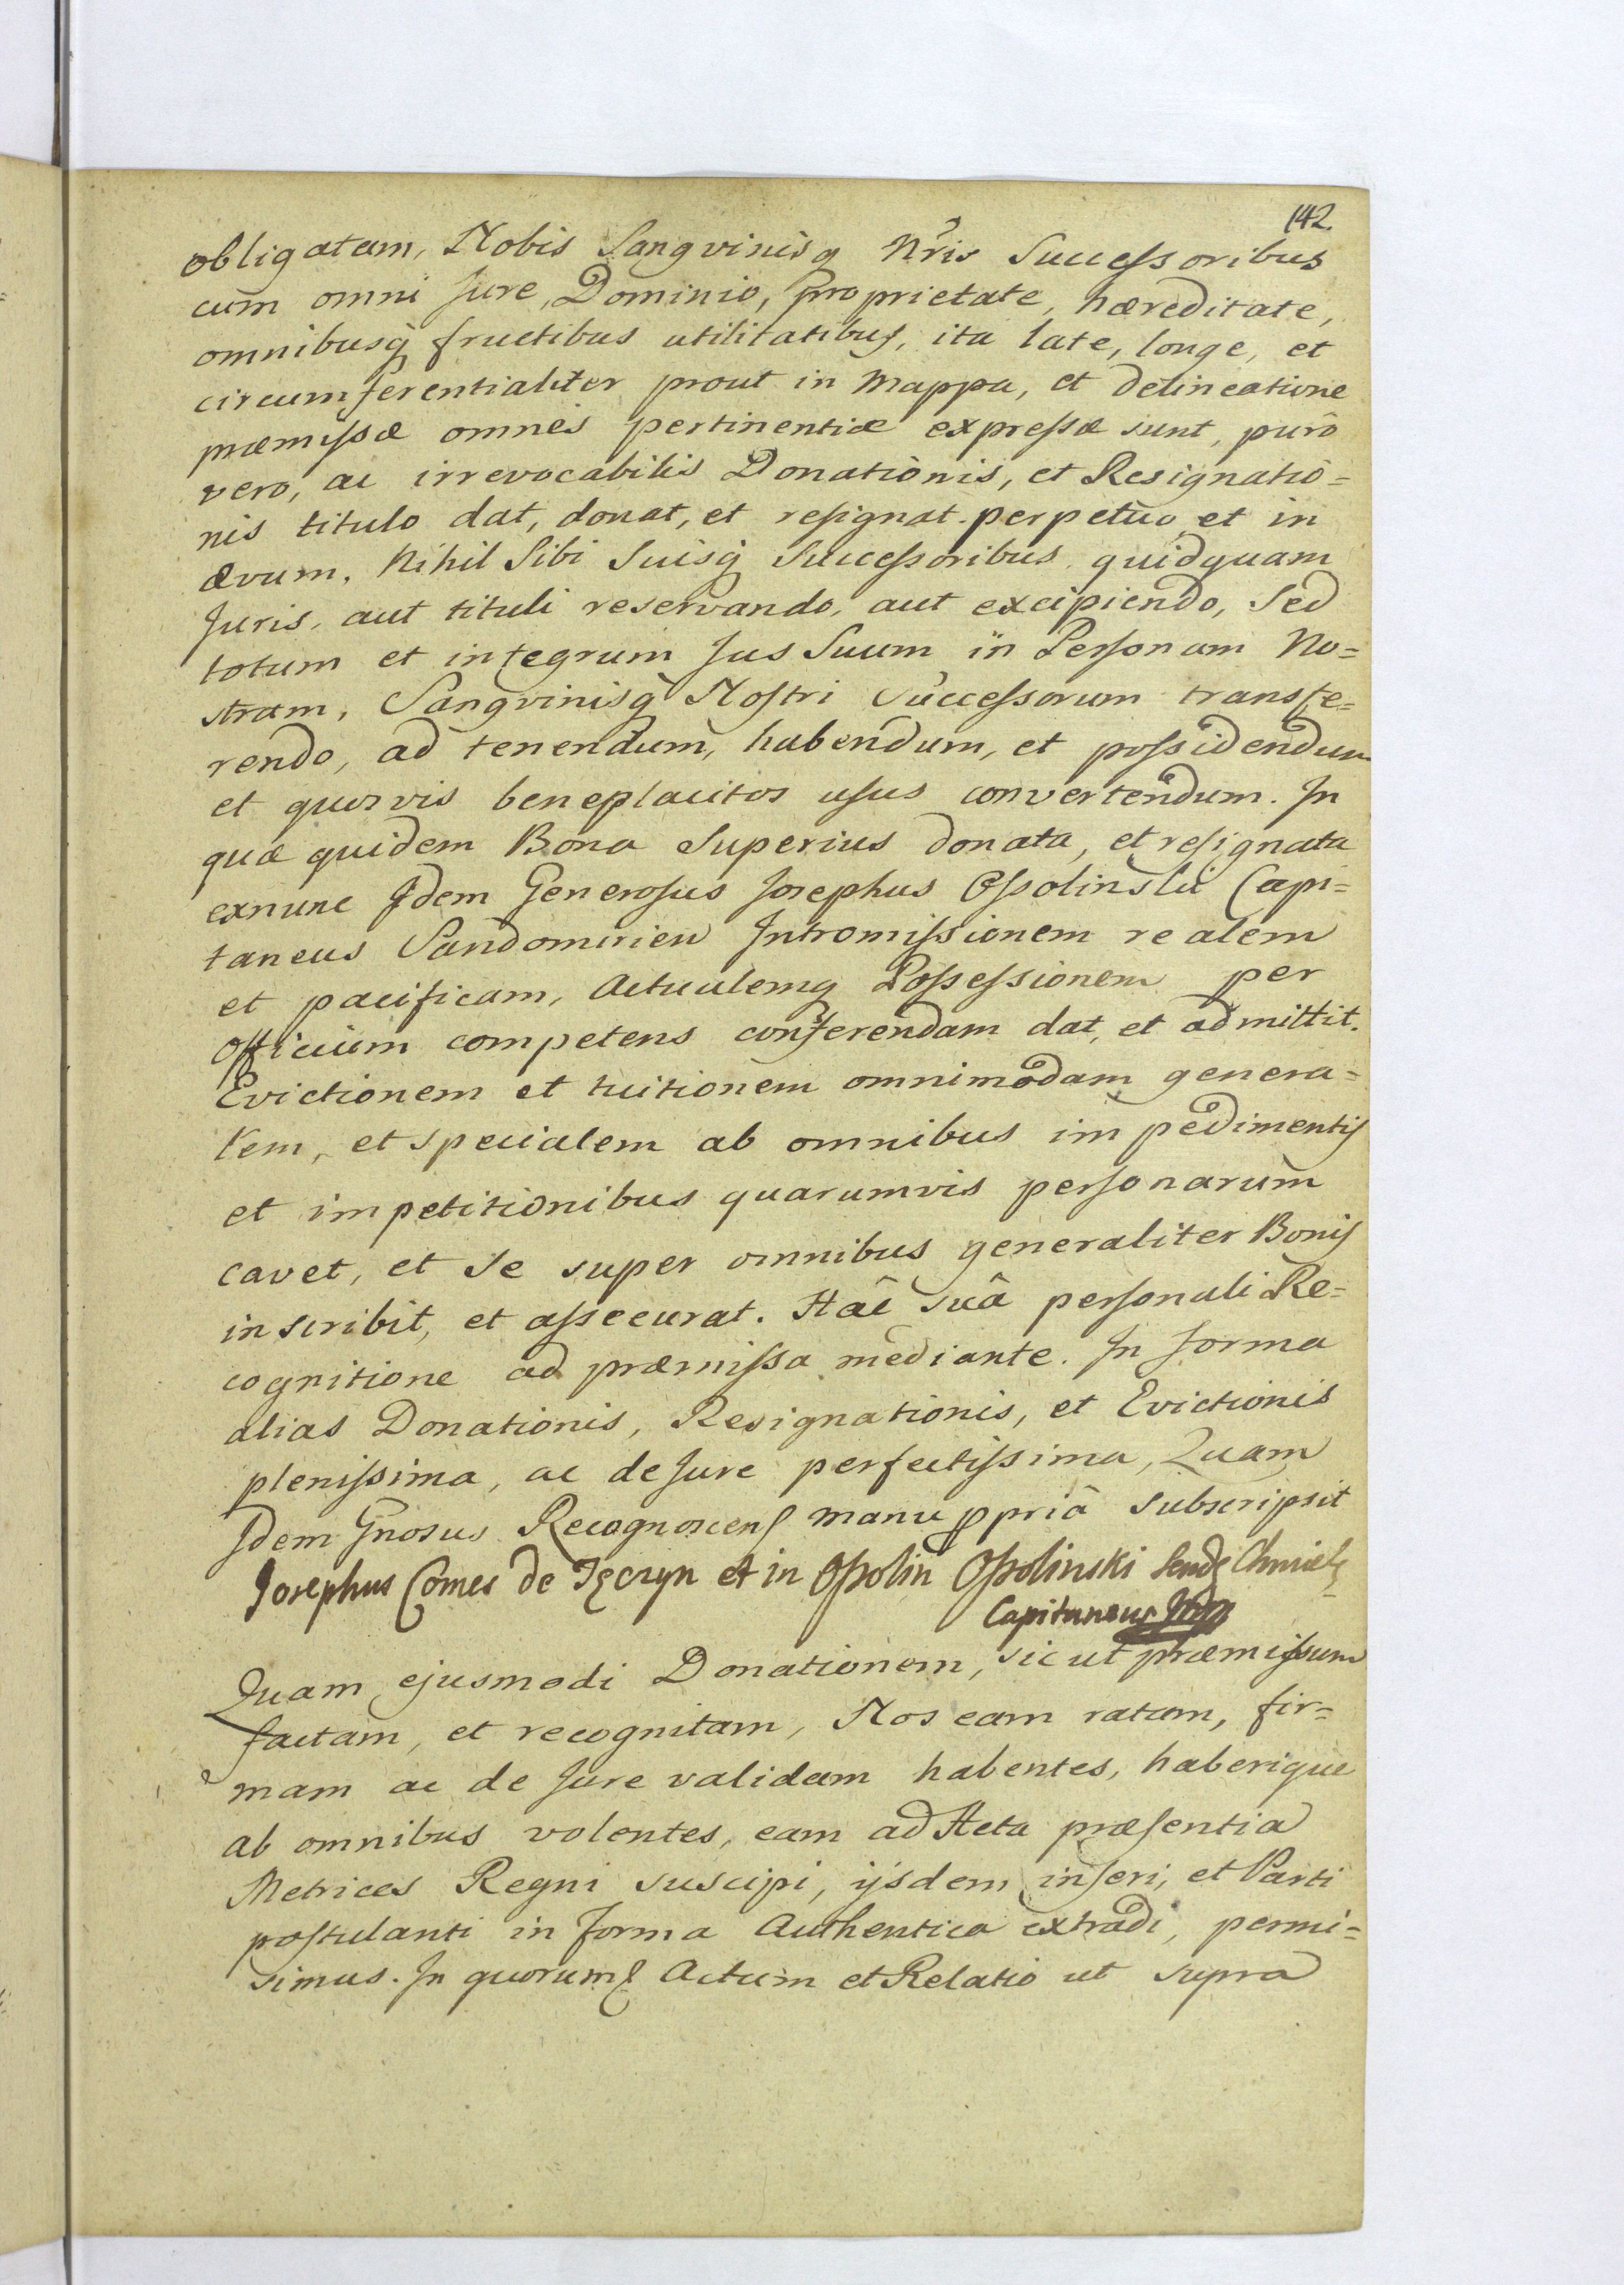 142.
obligatam, Nobis Sangvinisq Nr̃is Successoribus
cum omni Jure, Dominio, proprietate, hæreditate,
omnibusq fructibus utilitatibus, ita late, longe, et
circumferentialiter prout in Mappa, et delineatione
præmissæ omnes pertinentiæ expressæ sunt, purô
vero, ac irrevocabilis Donationis, et Resignatio=
nis titulo dat, donat, et resignat perpetuo et in
ævum, Nihil Sibi Suisq Successoribus quidquam
Juris, aut tituli reservando, aut excipiendo, Sed
totum et integrum Jus Suum in Personam No=
stram, Sangvinisq Nostri Successorum transfe=
rendo, ad tenendum, habendum, et possidendum
et quosvis beneplacitos usus convertendum. In
quæ quidem Bona Superius donata, et resignata
exnunc Idem Generosus Josephus Ossolinski Capi=
taneus Sandomirien Intromissionem realem
et pacificam, Actualemq Possessionem per
Officium competens conferendam dat, et admittit.
Evictionem et tuitionem omnimodam genera=
lem, et specialem ab omnibus impedimentis
et impetitionibus quarumvis personarum
cavet, et Se super omnibus generaliter Bonis
inscribit, et assecurat. Hâc suâ personali Re=
cognitione ad præmissa mediante. In forma
alias Donationis, Resignationis, et Evictionis
plenissima, ac de Jure perfectissima, Quam
Idem Gnosus Recognoscens manu ppriâ subscripsit
Josephus Comes de Tęczyn et in Ossolin Ossolinski Sendz Chmiel
Capitaneus
Quam ejusmodi Donationem, sic ut præmissum
factam, et recognitam, Nos eam ratam, fir=
mam ac de Jure validam habentes, haberique
ab omnibus volentes, eam ad Acta præsentia
Metrices Regni suscipi, ijsdem inseri, et Parti
postulanti in forma Authentica extradi, permi=
simus. In quorum Actum et Relatio ut supra